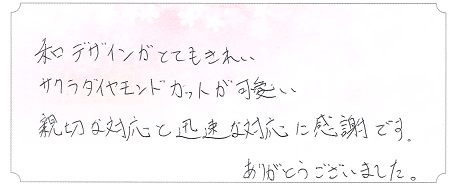 和デザインがとてもきれい
サクラダイヤモンドカットが可愛い
親切な対応と迅速な対応に感謝です。
ありがとうございました。